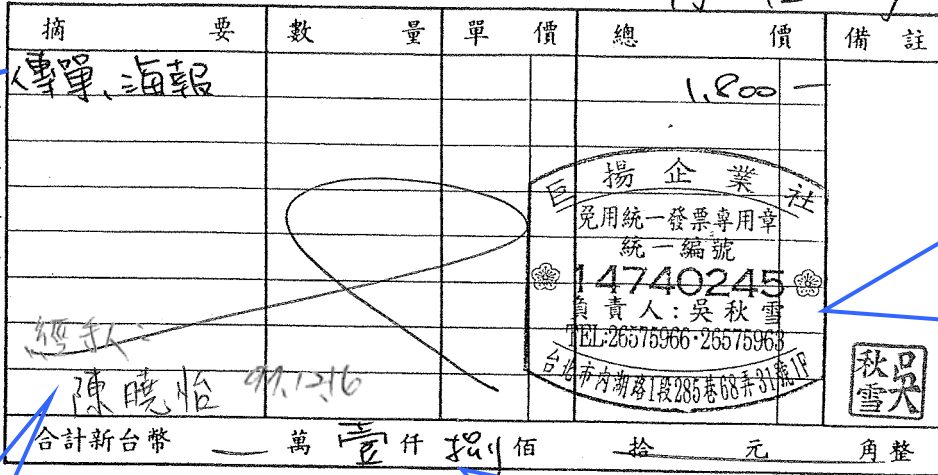 摘要 數量 單價 總價 備註
傳單、海報 1,800 —
巨揚企業社
免用統一發票專用章
統一編號
14740245
負責人：吳秋雪
TEL:26575966·26575963
台北市內湖路1段285巷68弄31號1F
吳秋雪
經手人：
陳曉怡 97.12.16
合計新台幣 萬 壹 仟 捌 佰 拾 元 角整